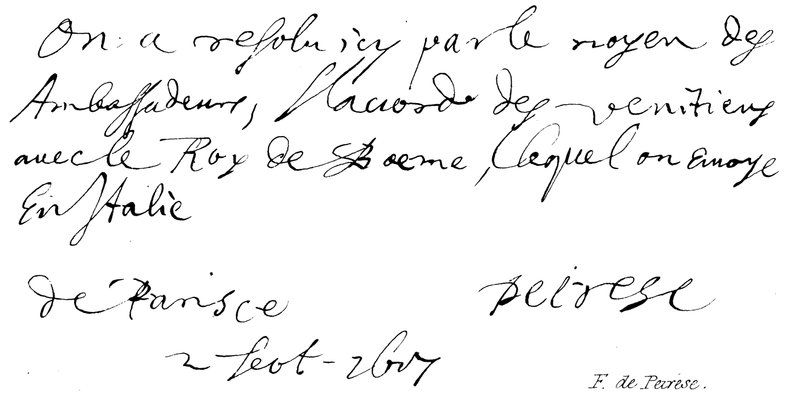 On a resolu icy par le moyen des
Ambassadeurs, l'accord des venitiens
avec le Roy de Boeme, lequel on envoye
En Italie
de Paris ce peiresc
2 sept - 1617
F. de Peiresc.